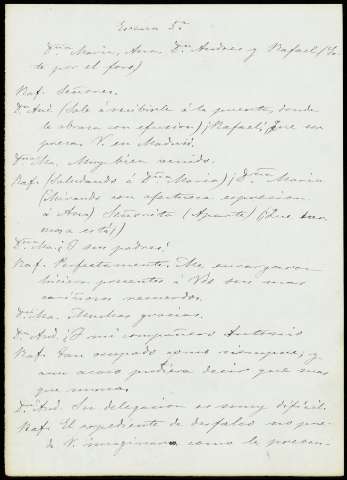 Escena 5ª
Dñª Maria, Ana, Dn Andres y Rafael (Es-
te por el foro)
Raf. Señores.
Dn And. (Sale á recibirle á la puerta, donde
le abraza con efusion) ¡Rafael! ¡Que sor
presa! V. en Madrid.
Dñª Ma. Muy bien venido.
Raf. (Saludando á Dñª Maria) ¡Dñª Maria
(Mirando con afectuosa expresion
á Ana) Señorita (Aparte) (¡Que her
mosa está!)
Dñª Ma. ¿Y sus padres?
Raf. Perfectamente. Me encargaron
hiciera presentes á Vds sus mas
cariñosos recuerdos.
Dñª Ma. Muchas gracias.
Dn And. ¿Y mi compañero Antonio
Raf. Tan ocupado como siempre, y
aun acaso pudiera decir que mas
que nunca.
Dn And. Su delegacion es muy dificil.
Raf. El expediente de desfalco no pue-
de V. imaginarse como le preocu-